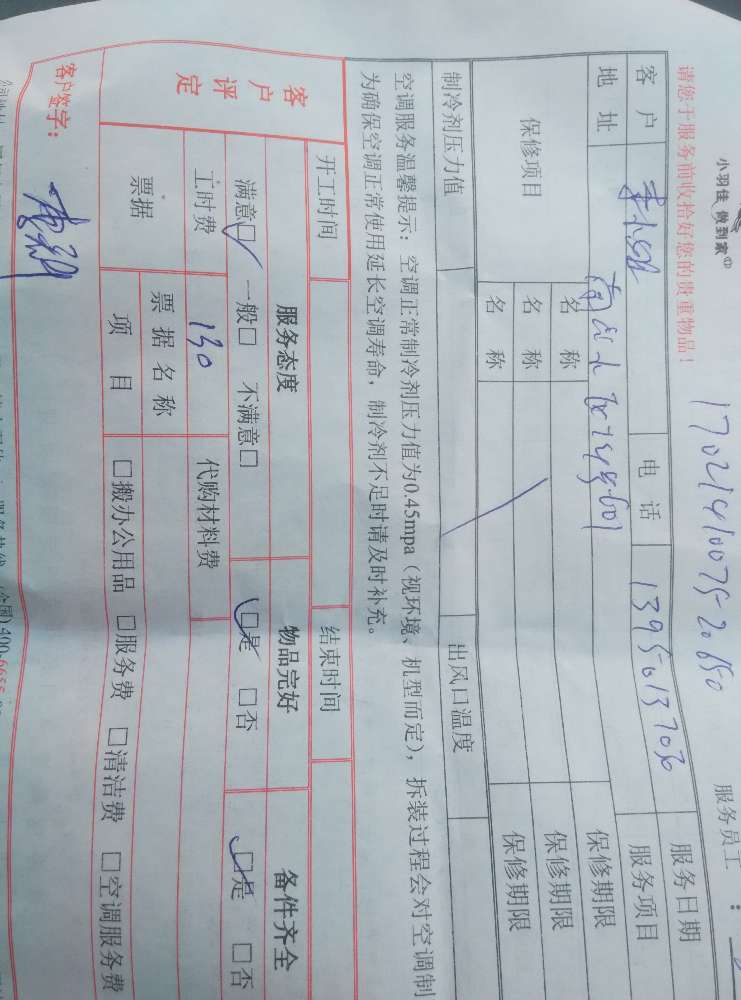 小羽佳 做到家
17021410075-20850
服务员工：
请您于服务前收拾好您的贵重物品！
服务日期
客户 电话 13950137030 服务项目
地址
保修项目 名称 保修期限
名称 保修期限
名称 保修期限
制冷剂压力值 出风口温度
空调服务温馨提示：空调正常制冷剂压力值为0.45mpa（视环境、机型而定），拆装过程会对空调制
为确保空调正常使用延长空调寿命，制冷剂不足时请及时补充。
开工时间 结束时间
客户评定 服务态度 物品完好 备件齐全
满意□ 一般□ 不满意□ □是 □否 □是 □否
工时费 130 代购材料费
票据 票据名称
项目 □搬办公用品 □服务费 □清洁费 □空调服务费
客户签字：